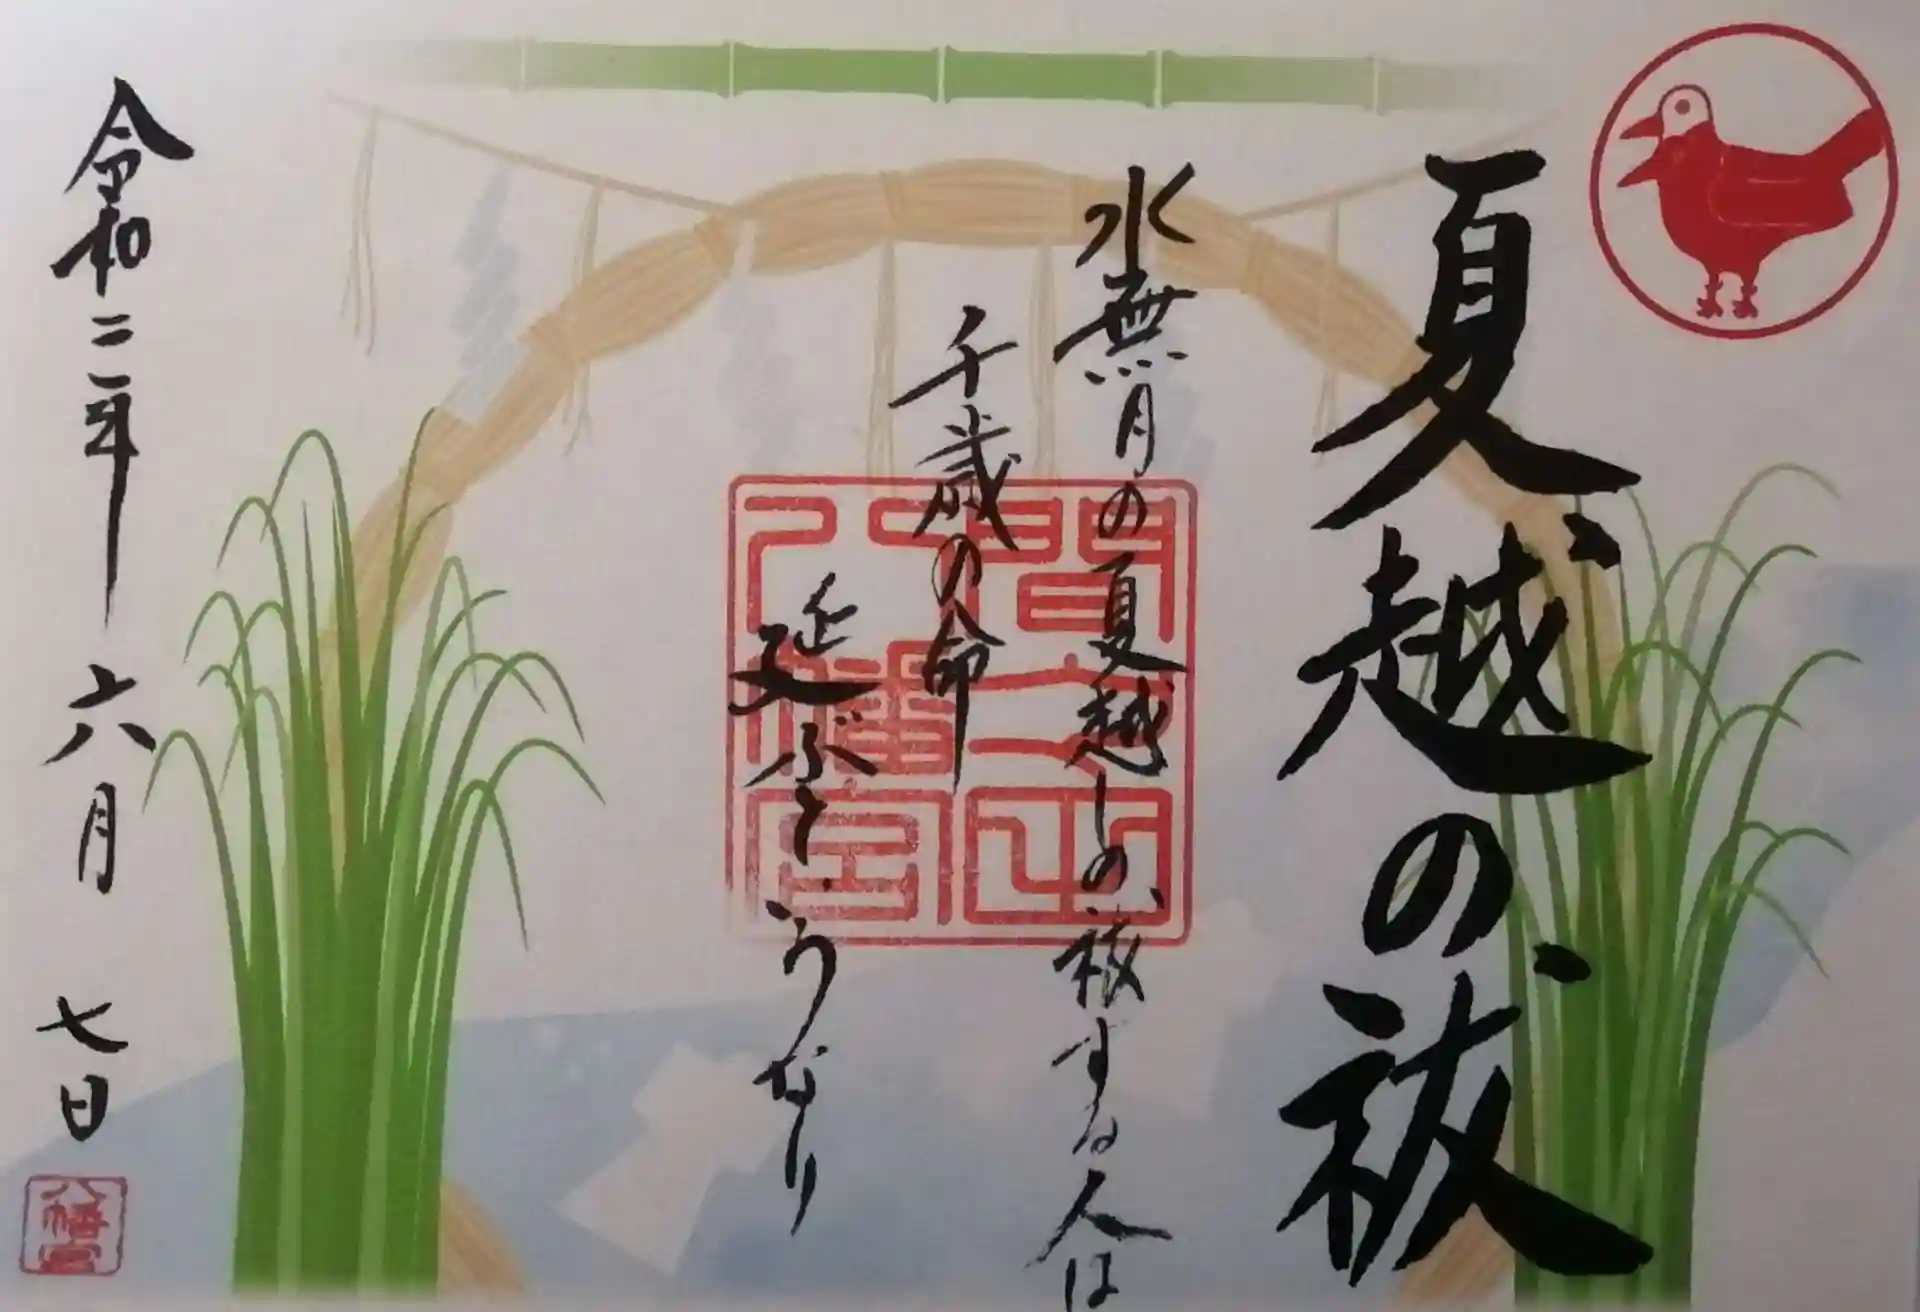 夏越の祓
水無月の夏越しの祓する人は
千歳の命
延ぶとうなり
令和二年 六月 七日
間之山
八幡宮
八幡宮